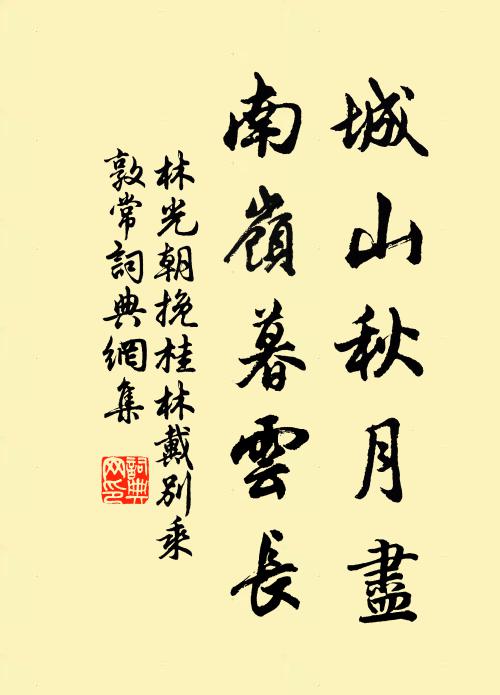 城山秋月盡
南嶺暮雲長
林光朝挽桂林戴別乘
敦常詞典網集
詞典
网印